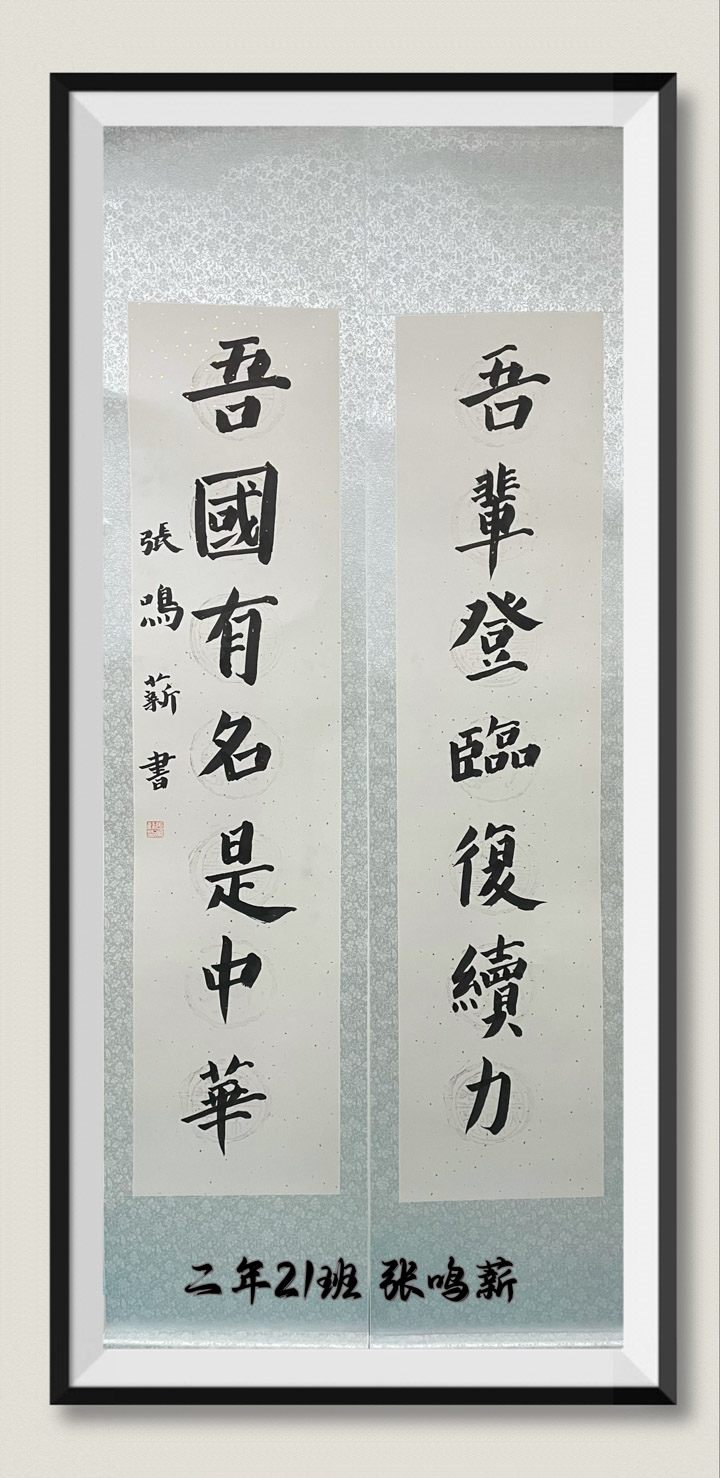 吾輩登臨復續力
吾國有名是中華
張鳴薪書
二年21班 张鸣薪